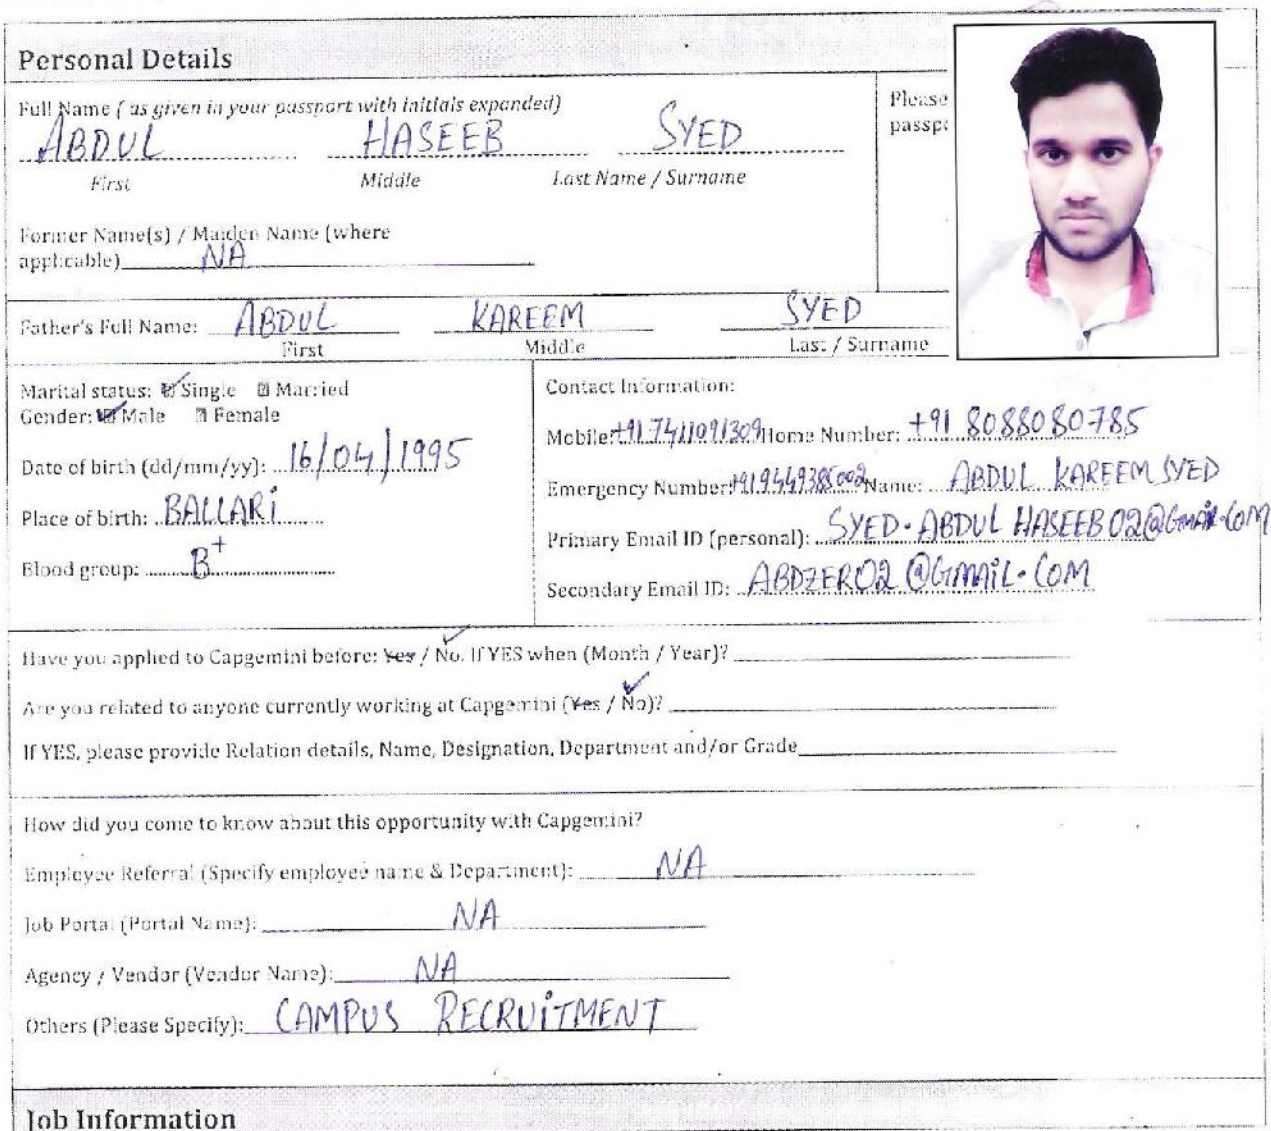 Personal Details
Full Name ( as given in your passport with initials expanded)
Please
passpo
ABDUL HASEEB SYED
First Middle Last Name / Surname
Former Name(s) / Maiden Name (where
applicable) NA
Father's Full Name: ABDUL KAREEM SYED
First Middle Last / Surname
Marital status: Single Married
Gender: Male Female
Date of birth (dd/mm/yy): 16/04/1995
Place of birth: BALLARi
Blood group: B+
Contact Information:
Mobile: +91 7411091309 Home Number: +91 8088080785
Emergency Number: +919449385002 Name: ABDUL KAREEM SYED
Primary Email ID (personal): SYED.ABDUL HASEEB02@GMAIL.COM
Secondary Email ID: ABDZERO2@GMAiL.COM
Have you applied to Capgemini before: Yes / No. If YES when (Month / Year)?
Are you related to anyone currently working at Capgemini (Yes / No)?
If YES, please provide Relation details, Name, Designation, Department and/or Grade
How did you come to know about this opportunity with Capgemini?
Employee Referral (Specify employee name & Department): NA
Job Portal (Portal Name): NA
Agency / Vendor (Vendor Name): NA
Others (Please Specify): CAMPUS RECRUiTMENT
Job Information